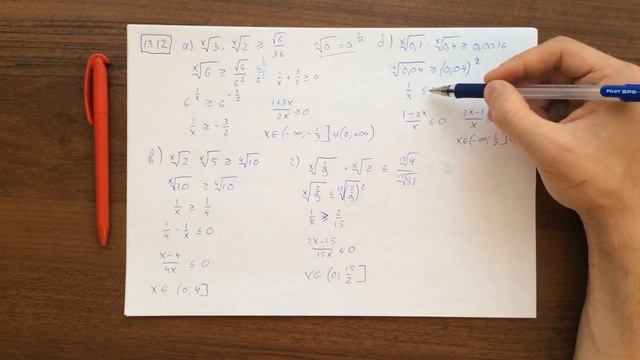 13.12 а) ˣ√3 · ˣ√2 ≥ √6/36
√a = a^(1/2)
ˣ√6 ≥ √6/6² 6^(1/2)/6² 1/x + 3/2 ≥ 0
6^(1/x) ≥ 6^(-3/2) (1+3x)/2x ≥ 0
1/x ≥ -3/2 x∈(-∞;-1/3] ∪ (0;+∞)
б) ˣ√0,1 · ˣ√0,4 ≥ 0,0016
ˣ√0,04 ≥ (0,04)²
1/x ≤
(1-2x)/x ≤ 0 2x-1
x∈(-∞;
в) ˣ√2 ˣ√5 ≥ ⁴√10
ˣ√10 ≥ ⁴√10
1/x ≥ 1/4
1/4 - 1/x ≤ 0
(x-4)/4x ≤ 0
x∈ (0;4]
г) ˣ√(1/9) · ˣ√2 ≤ ¹⁵√4/¹⁵√81
ˣ√(2/9) ≤ ¹⁵√(2/9)²
1/x ≥ 2/15
(2x-15)/15x ≤ 0
x∈ (0; 15/2]
PILOT BPS-